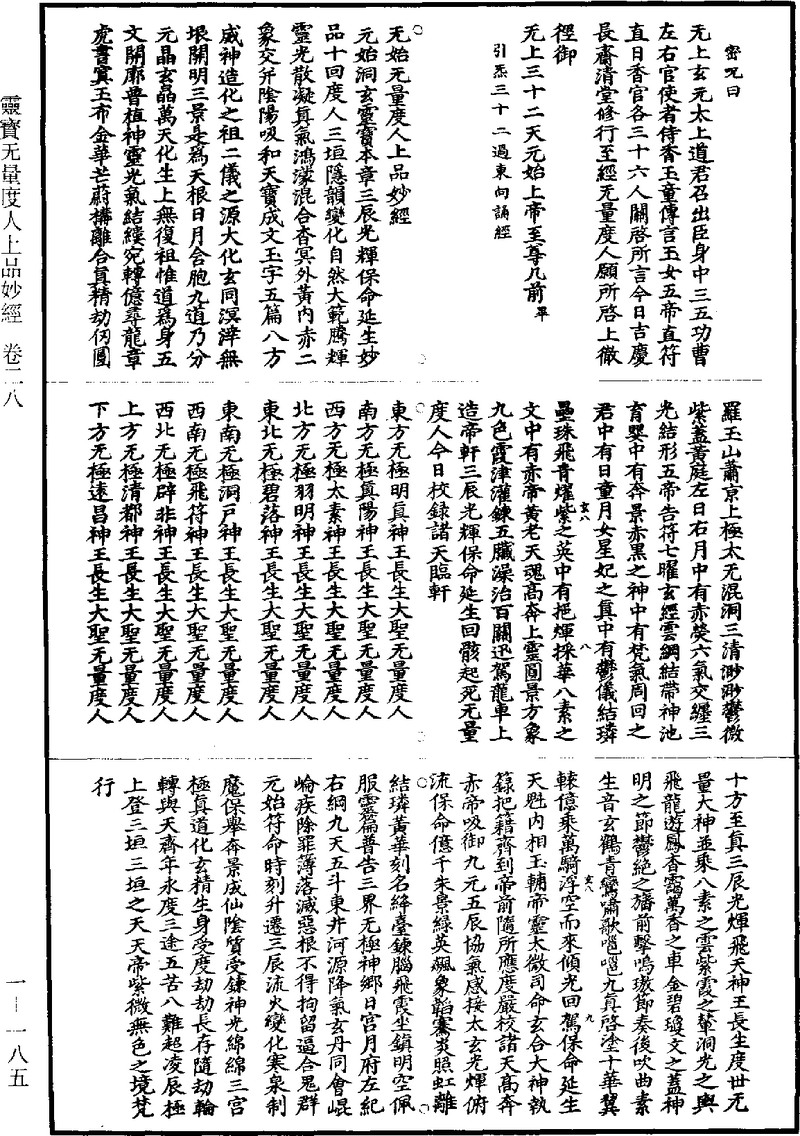 密咒曰
无上玄元太上道君召出臣身中三五功曹
左右官使者侍香玉童傳言玉女五帝直符
直日香官各三十六人關啓所言今日吉慶
長齋清堂修行至經无量度人願所啓上徹
徑御
无上三十二天元始上帝至尊几前畢
引炁三十二過東向誦經
元始无量度人上品妙經
元始洞玄靈寶本章三辰光輝保命延生妙
品十回度人三垣隱韻變化自然大範騰輝
靈光散凝真氣鴻濛混合杳冥外黃内赤二
象交并陰陽吸和天寶成文玉字五篇八方
威神造化之祖二儀之源大化玄同溟涬無
垠開明三景是爲天根日月會胞九道乃分
元晶玄晶萬天化生上無復祖惟道爲身五
文開廓普植神靈光氣結縷宛轉億尋龍章
虎書寞玉布金華芒蔚構離合真精劫仞圓
羅玉山蕭京上極太无混洞三清渺渺鬱微
紫蓋黃庭左日右月中有赤熒六氣交纏三
光結形五帝告符七曜玄經雲綱結帶神池
育嬰中有奔景赤黑之神中有梵氣周回之
君中有日童月女星妃之真中有鬱儀結璘
壘珠飛青燿紫之英中有挹輝採華八素之
文中有赤帝黃老天魂高奔上靈圓景方象
九色霞津灌鍊五臟澡治百關迅駕龍車上
造帝軒三辰光輝保命延生回骸起死无量
度人今日校録諸天臨軒
東方无極明真神王長生大聖无量度人
南方无極真陽神王長生大聖无量度人
西方无極太素神王長生大聖无量度人
北方无極羽明神王長生大聖无量度人
東北无極碧落神王長生大聖无量度人
東南无極洞戸神王長生大聖无量度人
西南无極飛符神王長生大聖无量度人
西北无極辟非神王長生大聖无量度人
上方无極清都神王長生大聖无量度人
下方无極遠昌神王長生大聖无量度人
十方至真三辰光輝飛天神王長生度世无
量大神並乘八素之雲紫霞之輦洞光之輿
飛龍遊鳳香靄萬香之車金碧瓊文之蓋神
明之節鬱絶之旛前擊鳴璈節奏後吹曲素
生音玄鶴青鸞嘯歌嗈嗈九真啓塗十華翼
轅億乘萬騎浮空而來傾光回駕保命延生
天魁内相玉輔帝靈太微司命玄合大神執
籙把籍齊到帝前隨所應度嚴校諸天高奔
赤帝吸御九元五辰協氣感接太玄光煇俯
流保命億千朱景緑英飆象韜騫炎照虹離
結璘黃華刻名絳臺鍊腦飛霞坐鎮明空佩
服靈篇普告三界无極神郷日宮月府左紀
右綱九天五斗東井河源降氣玄丹同會崐
崘疾除罪簿落滅惡根不得拘留逼合鬼群
元始符命時刻升遷三辰流火變化寒泉制
魔保舉奔景成仙陰質受鍊神光綿綿三宮
極真道化玄精生身受度劫劫長存隨劫輪
轉與天齊年永度三途五苦八難超凌辰極
上登三垣三垣之天天帝紫微無色之境梵
行
靈寶无量度人上品妙經 卷二八
一—一八五